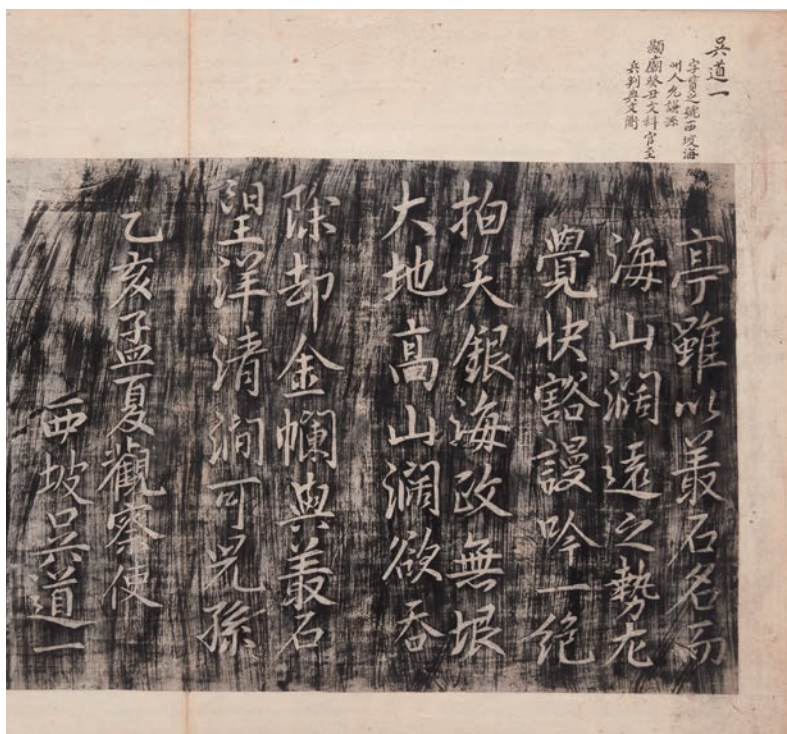 吳道一
字貫之號西坡海
州人允謙孫
顯廟癸丑文科官至
兵判典文衡
亭雖以叢石名而
海山濶遠之勢尤
覺快豁謾吟一絶
拍天銀海政無垠
大地高山濶欲吞
除却金幱與叢石
望洋淸澗可兒孫
乙亥孟夏觀察使
西坡吳道一